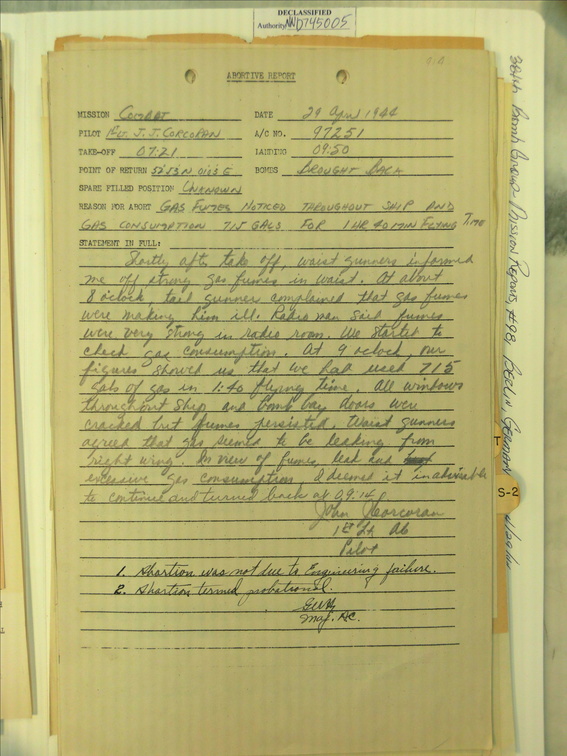 DECLASSIFIED
Authority NND745005
ABORTIVE REPORT
MISSION Combat DATE 29 April 1944
PILOT J. J. CORCORAN A/C NO. 97251
TAKE-OFF 07:21 LANDING 09:50
POINT OF RETURN 52 53 N 0183 E BOMBS BROUGHT BACK
SPARE FILLED POSITION UNKNOWN
REASON FOR ABORT GAS FUMES NOTICED THROUGHOUT SHIP AND
GAS CONSUMPTION 715 GALS FOR 1 HR 40 MIN FLYING TIME
STATEMENT IN FULL:
Shortly after take off, waist gunners informed
me off strong gas fumes in waist. At about
8 o'clock, tail gunner complained that gas fumes
were making him ill. Radio man said fumes
were very strong in radio room. We started to
check gas consumption. At 9 oclock, our
figures showed us that we had used 715
gals of gas in 1:40 flying time. All windows
throughout ship and bomb bay doors were
cracked but fumes persisted. Waist gunners
agreed that gas seemed to be leaking from
right wing. In view of fumes, leak and
excessive gas consumption, I deemed it inadvisable
to continue and turned back at 09:14
John J Corcoran
1st Lt AC
Pilot
1. Abortion was not due to Engineering failure.
2. Abortion termed probational.
Maj. AC.
384th Bomb Group Mission Reports, #98, BERLIN, GERMANY
S-2